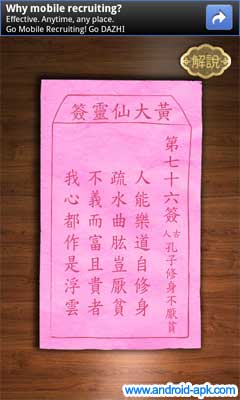 Why mobile recruiting?
Effective. Anytime, any place.
Go Mobile Recruiting! Go DAZHI
解說
黃大仙靈簽
第七十六簽
古人 孔子修身不厭貧
人能樂道自修身
疏水曲肱豈厭貧
不義而富且貴者
我心都作是浮雲
www.android-apk.com